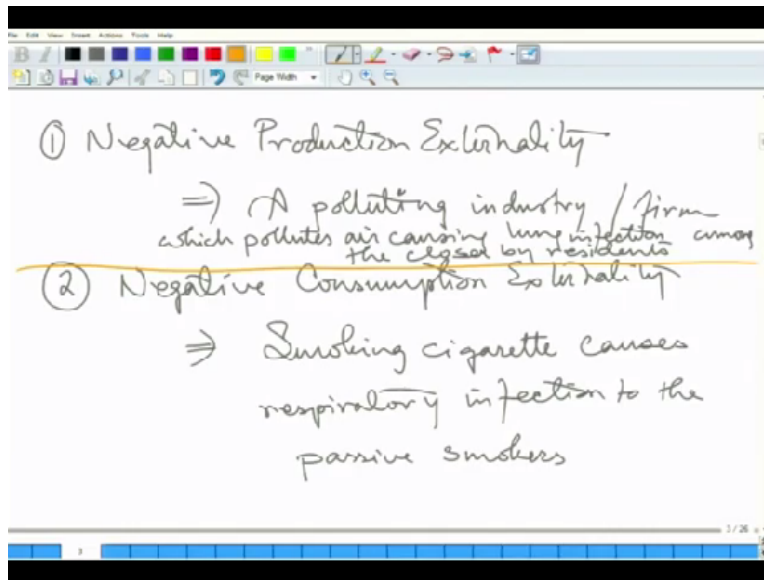 File Edit View Insert Actions Tools Help
B I
Page Width
① Negative Production Externality
⇒ A polluting industry / firm
which pollutes air causing lung infection among
the closer by residents
② Negative Consumption Externality
⇒ Smoking cigarette causes
respiratory infection to the
passive smokers
3 / 26
3